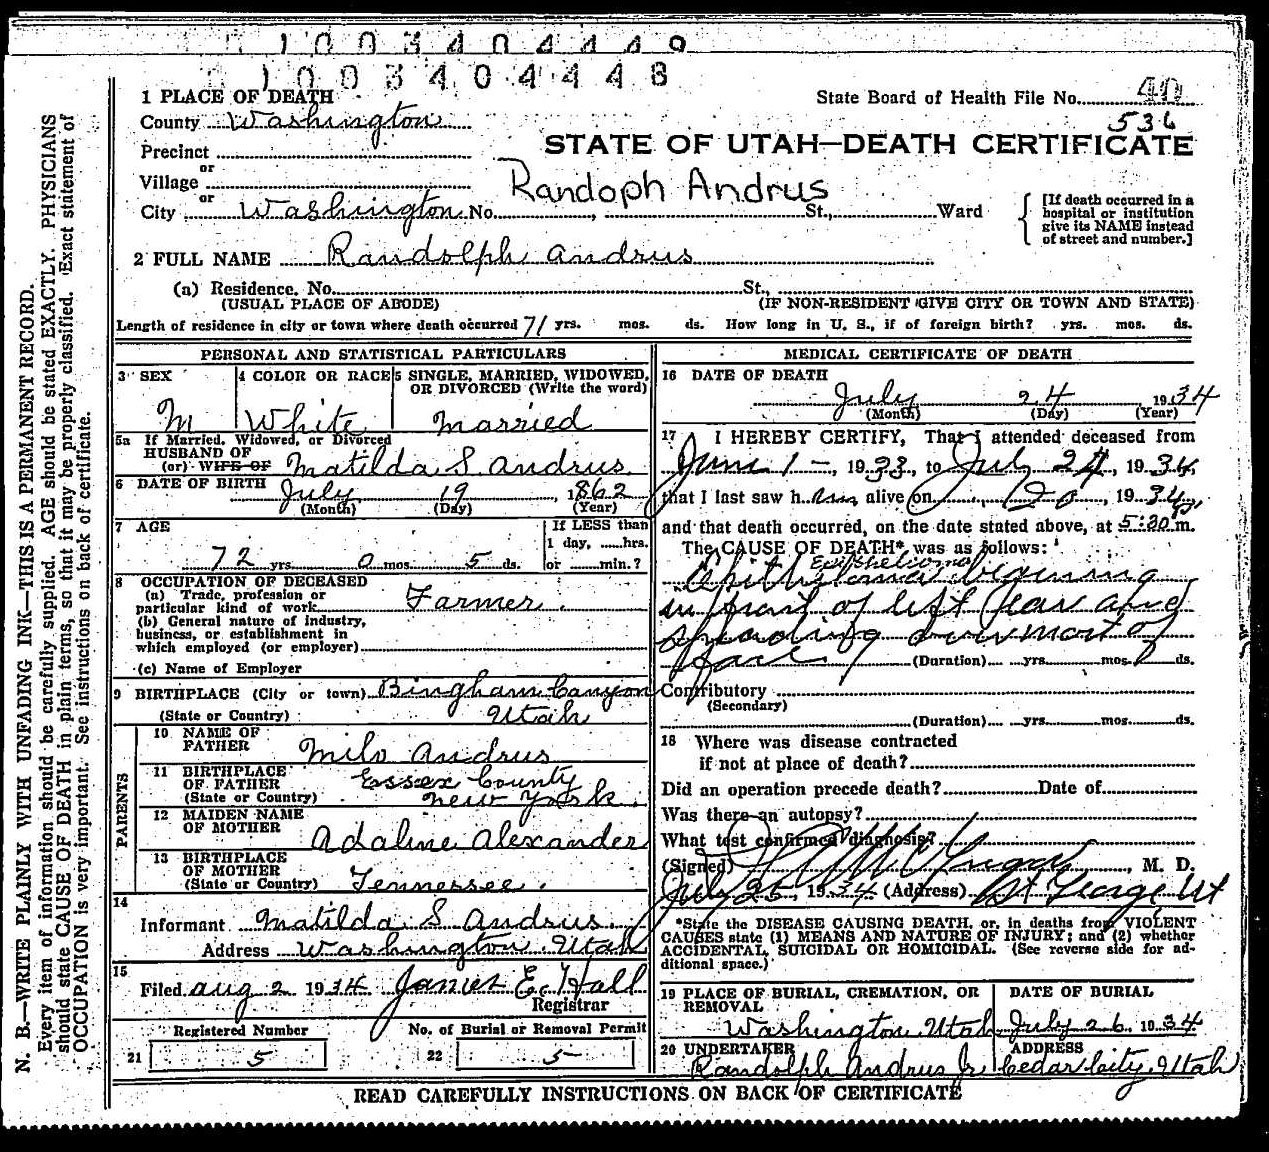 1003404449
1003404448
1 PLACE OF DEATH
State Board of Health File No. 40
County Washington
536
STATE OF UTAH—DEATH CERTIFICATE
Precinct
or
Village
Randoph Andrus
or
City Washington No. , St., Ward
[If death occurred in a
hospital or institution
give its NAME instead
of street and number.]
2 FULL NAME Randolph Andrus
(a) Residence. No. St.,
(USUAL PLACE OF ABODE) (IF NON-RESIDENT GIVE CITY OR TOWN AND STATE)
Length of residence in city or town where death occurred 71 yrs. mos. ds. How long in U. S., if of foreign birth? yrs. mos. ds.
PERSONAL AND STATISTICAL PARTICULARS
3 SEX
M
4 COLOR OR RACE
White
5 SINGLE, MARRIED, WIDOWED,
OR DIVORCED (Write the word)
Married
5a If Married, Widowed, or Divorced
HUSBAND OF
(or) WIFE OF Matilda S. Andrus
6 DATE OF BIRTH
July 19, 1862
(Month) (Day) (Year)
7 AGE
72 yrs. 0 mos. 5 ds.
If LESS than
1 day, ......hrs.
or ......min.?
8 OCCUPATION OF DECEASED
(a) Trade, profession or
particular kind of work Farmer.
(b) General nature of industry,
business, or establishment in
which employed (or employer)
(c) Name of Employer
9 BIRTHPLACE (City or town) Bingham Canyon
(State or Country) Utah
PARENTS
10 NAME OF
FATHER Milo Andrus
11 BIRTHPLACE
OF FATHER Essex County
(State or Country) New York.
12 MAIDEN NAME
OF MOTHER Adaline Alexander
13 BIRTHPLACE
OF MOTHER
(State or Country) Tennessee.
14
Informant Matilda S. Andrus
Address Washington Utah
15
Filed Aug 2 1934 James E. Hall
Registrar
Registered Number No. of Burial or Removal Permit
21 5 22 5
MEDICAL CERTIFICATE OF DEATH
16 DATE OF DEATH
July 24 1934
(Month) (Day) (Year)
17 I HEREBY CERTIFY, That I attended deceased from
June 1 -, 1933, to July 24, 1934,
that I last saw h im alive on , 1934,
and that death occurred, on the date stated above, at 5:20 m.
The CAUSE OF DEATH* was as follows:
Epithelioma
beginning
in front of left ear and
spreading over most of
face (Duration) yrs. mos. ds.
Contributory
(Secondary)
(Duration) yrs. mos. ds.
18 Where was disease contracted
if not at place of death?
Did an operation precede death? Date of
Was there an autopsy?
What test confirmed diagnosis?
(Signed) , M. D.
July 25 1934 (Address) St George Ut
*State the DISEASE CAUSING DEATH, or, in deaths from VIOLENT
CAUSES state (1) MEANS AND NATURE OF INJURY; and (2) whether
ACCIDENTAL, SUICIDAL OR HOMICIDAL. (See reverse side for ad-
ditional space.)
19 PLACE OF BURIAL, CREMATION, OR
REMOVAL
Washington Utah
DATE OF BURIAL
July 26, 1934
20 UNDERTAKER
Randolph Andrus Jr.
ADDRESS
Cedar City, Utah
READ CAREFULLY INSTRUCTIONS ON BACK OF CERTIFICATE
N. B.—WRITE PLAINLY WITH UNFADING INK—THIS IS A PERMANENT RECORD.
Every item of information should be carefully supplied. AGE should be stated EXACTLY. PHYSICIANS
should state CAUSE OF DEATH in plain terms, so that it may be properly classified. Exact statement of
OCCUPATION is very important. See instructions on back of certificate.